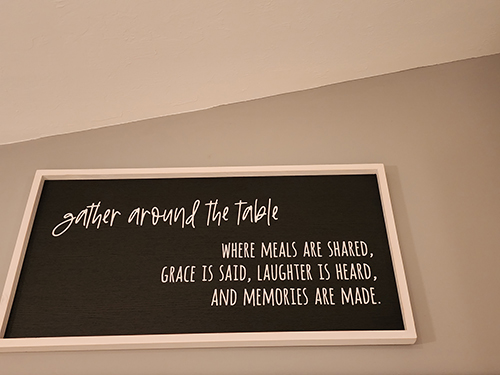 gather around the table
WHERE MEALS ARE SHARED,
GRACE IS SAID, LAUGHTER IS HEARD,
AND MEMORIES ARE MADE.